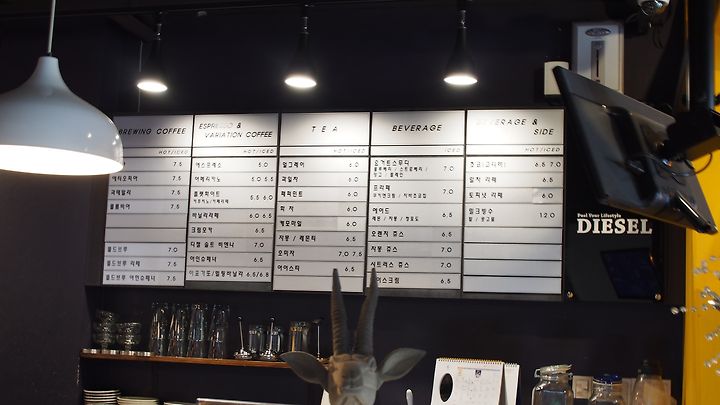 BREWING COFFEE
HOT/ICED
7.5
에티오피아 7.5
과테말라 7.5
콜롬비아 7.5
콜드브루 7.0
콜드브루 라떼 7.5
콜드브루 아인슈페너 7.5
ESPRESSO &
VARIATION COFFEE
HOT/ICED
에스프레소 5.0
아메리카노 5.0 5.5
플랫화이트 5.5 6.0
바닐라라떼 6.0 6.5
크림모카 6.5
더블 솔트 비엔나 7.0
아인슈페너 6.5
6.5/6.8
TEA
HOT/ICED
얼그레이 6.0
과일차 6.0
페퍼민트 6.0
6.0
캐모마일 6.0
자몽 / 레몬티 6.5
오미자 7.0 7.5
아이스티 6.5
BEVERAGE
ICED
요거트스무디 7.0
블루베리 / 스트로베리 /
망고 / 플레인
프라페 7.0
에이드 6.5
레몬 / 자몽 / 청포도
오렌지 쥬스 6.5
자몽 쥬스 7.0
시트러스 쥬스 6.5
아이스크림 6.5
BEVERAGE &
SIDE
HOT/ICED
6.5 7.0
말차 라떼 6.5
토피넛 라떼 6.0
밀크빙수 12.0
팥 / 콩고물
Fuel Your Lifestyle
DIESEL